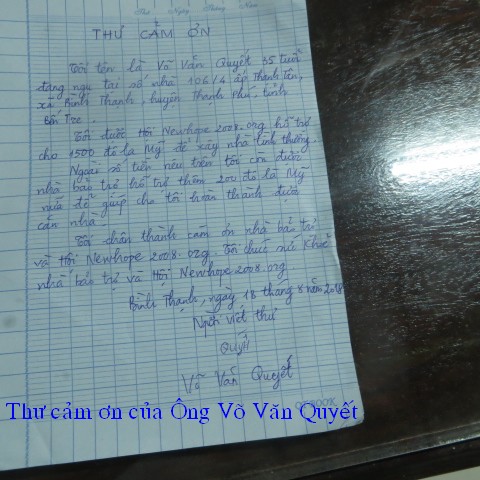 Thứ Ngày Tháng Năm
THƯ CẢM ƠN
Tôi tên là Võ Văn Quyết 35 tuổi
đang ngụ tại số nhà 106/4 ấp Thạnh Tân,
xã Bình Thạnh, huyện Thạnh Phú, tỉnh
Bến Tre.
Tôi được Hội Newhope2008.org hổ trợ
cho 1500 đô la Mỹ để xây nhà tình thương.
Ngoài số tiền nêu trên tôi còn được
nhà bảo trợ hổ trợ thêm 200 đô la Mỹ
nữa để giúp cho tôi hoàn thành được
căn nhà.
Tôi chân thành cảm ơn nhà bảo trợ
và Hội Newhope2008.org. Tôi chúc sức khỏe
nhà bảo trợ và Hội Newhope2008.org
Bình Thạnh, ngày 18 tháng 8 năm 2018
Người viết thư
Quyết
Võ Văn Quyết
Thư cảm ơn của Ông Võ Văn Quyết